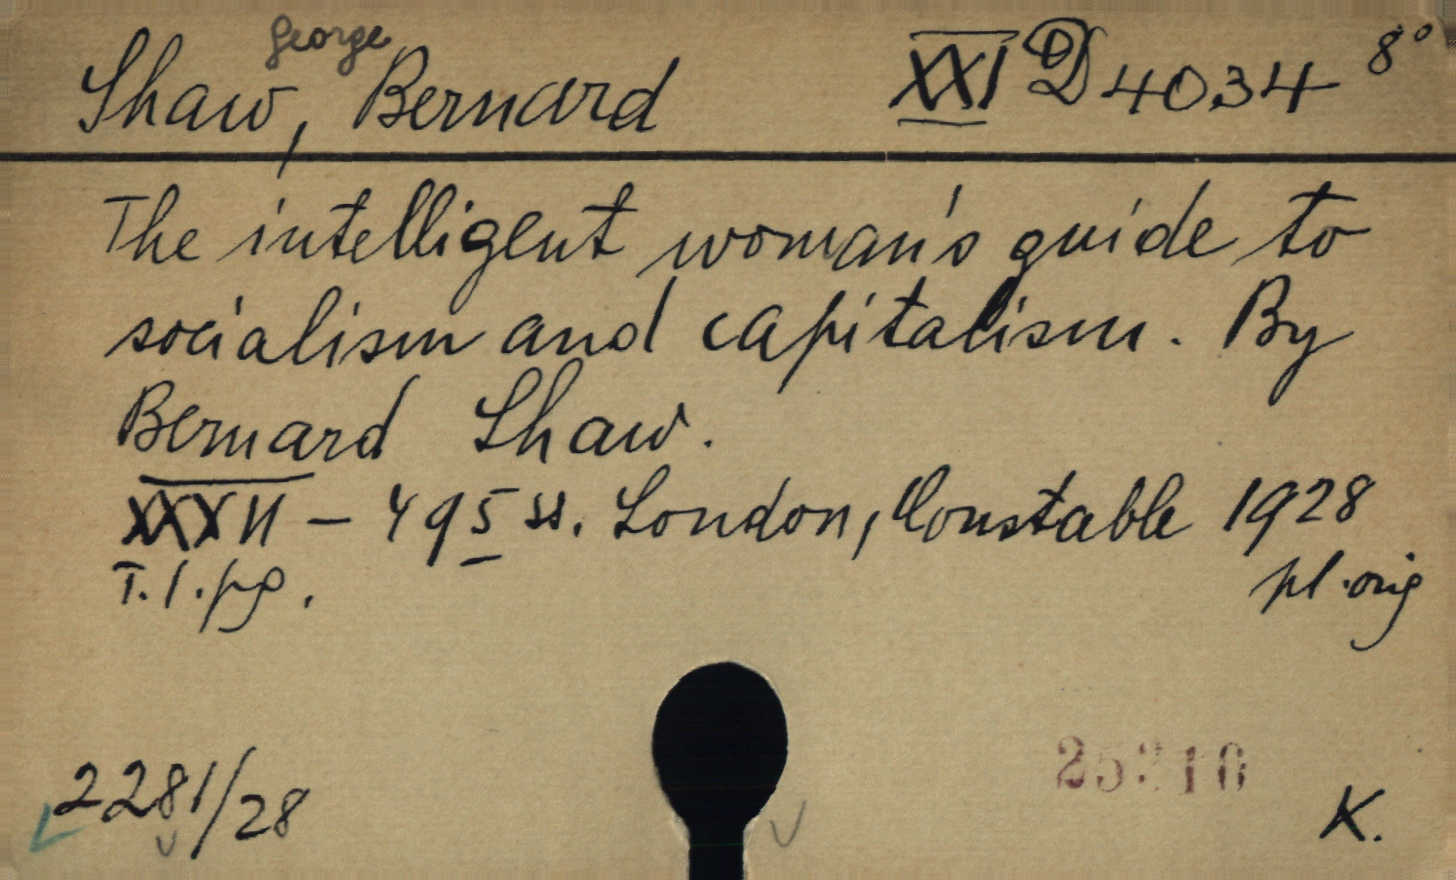 George
Shaw, Bernard XXI D 4034 8°
The intelligent woman's guide to
socialism and capitalism. By
Bernard Shaw.
XXXVI - 495 ss. London, Constable 1928
T. 1. pg. pl. orig
2281/28
K.